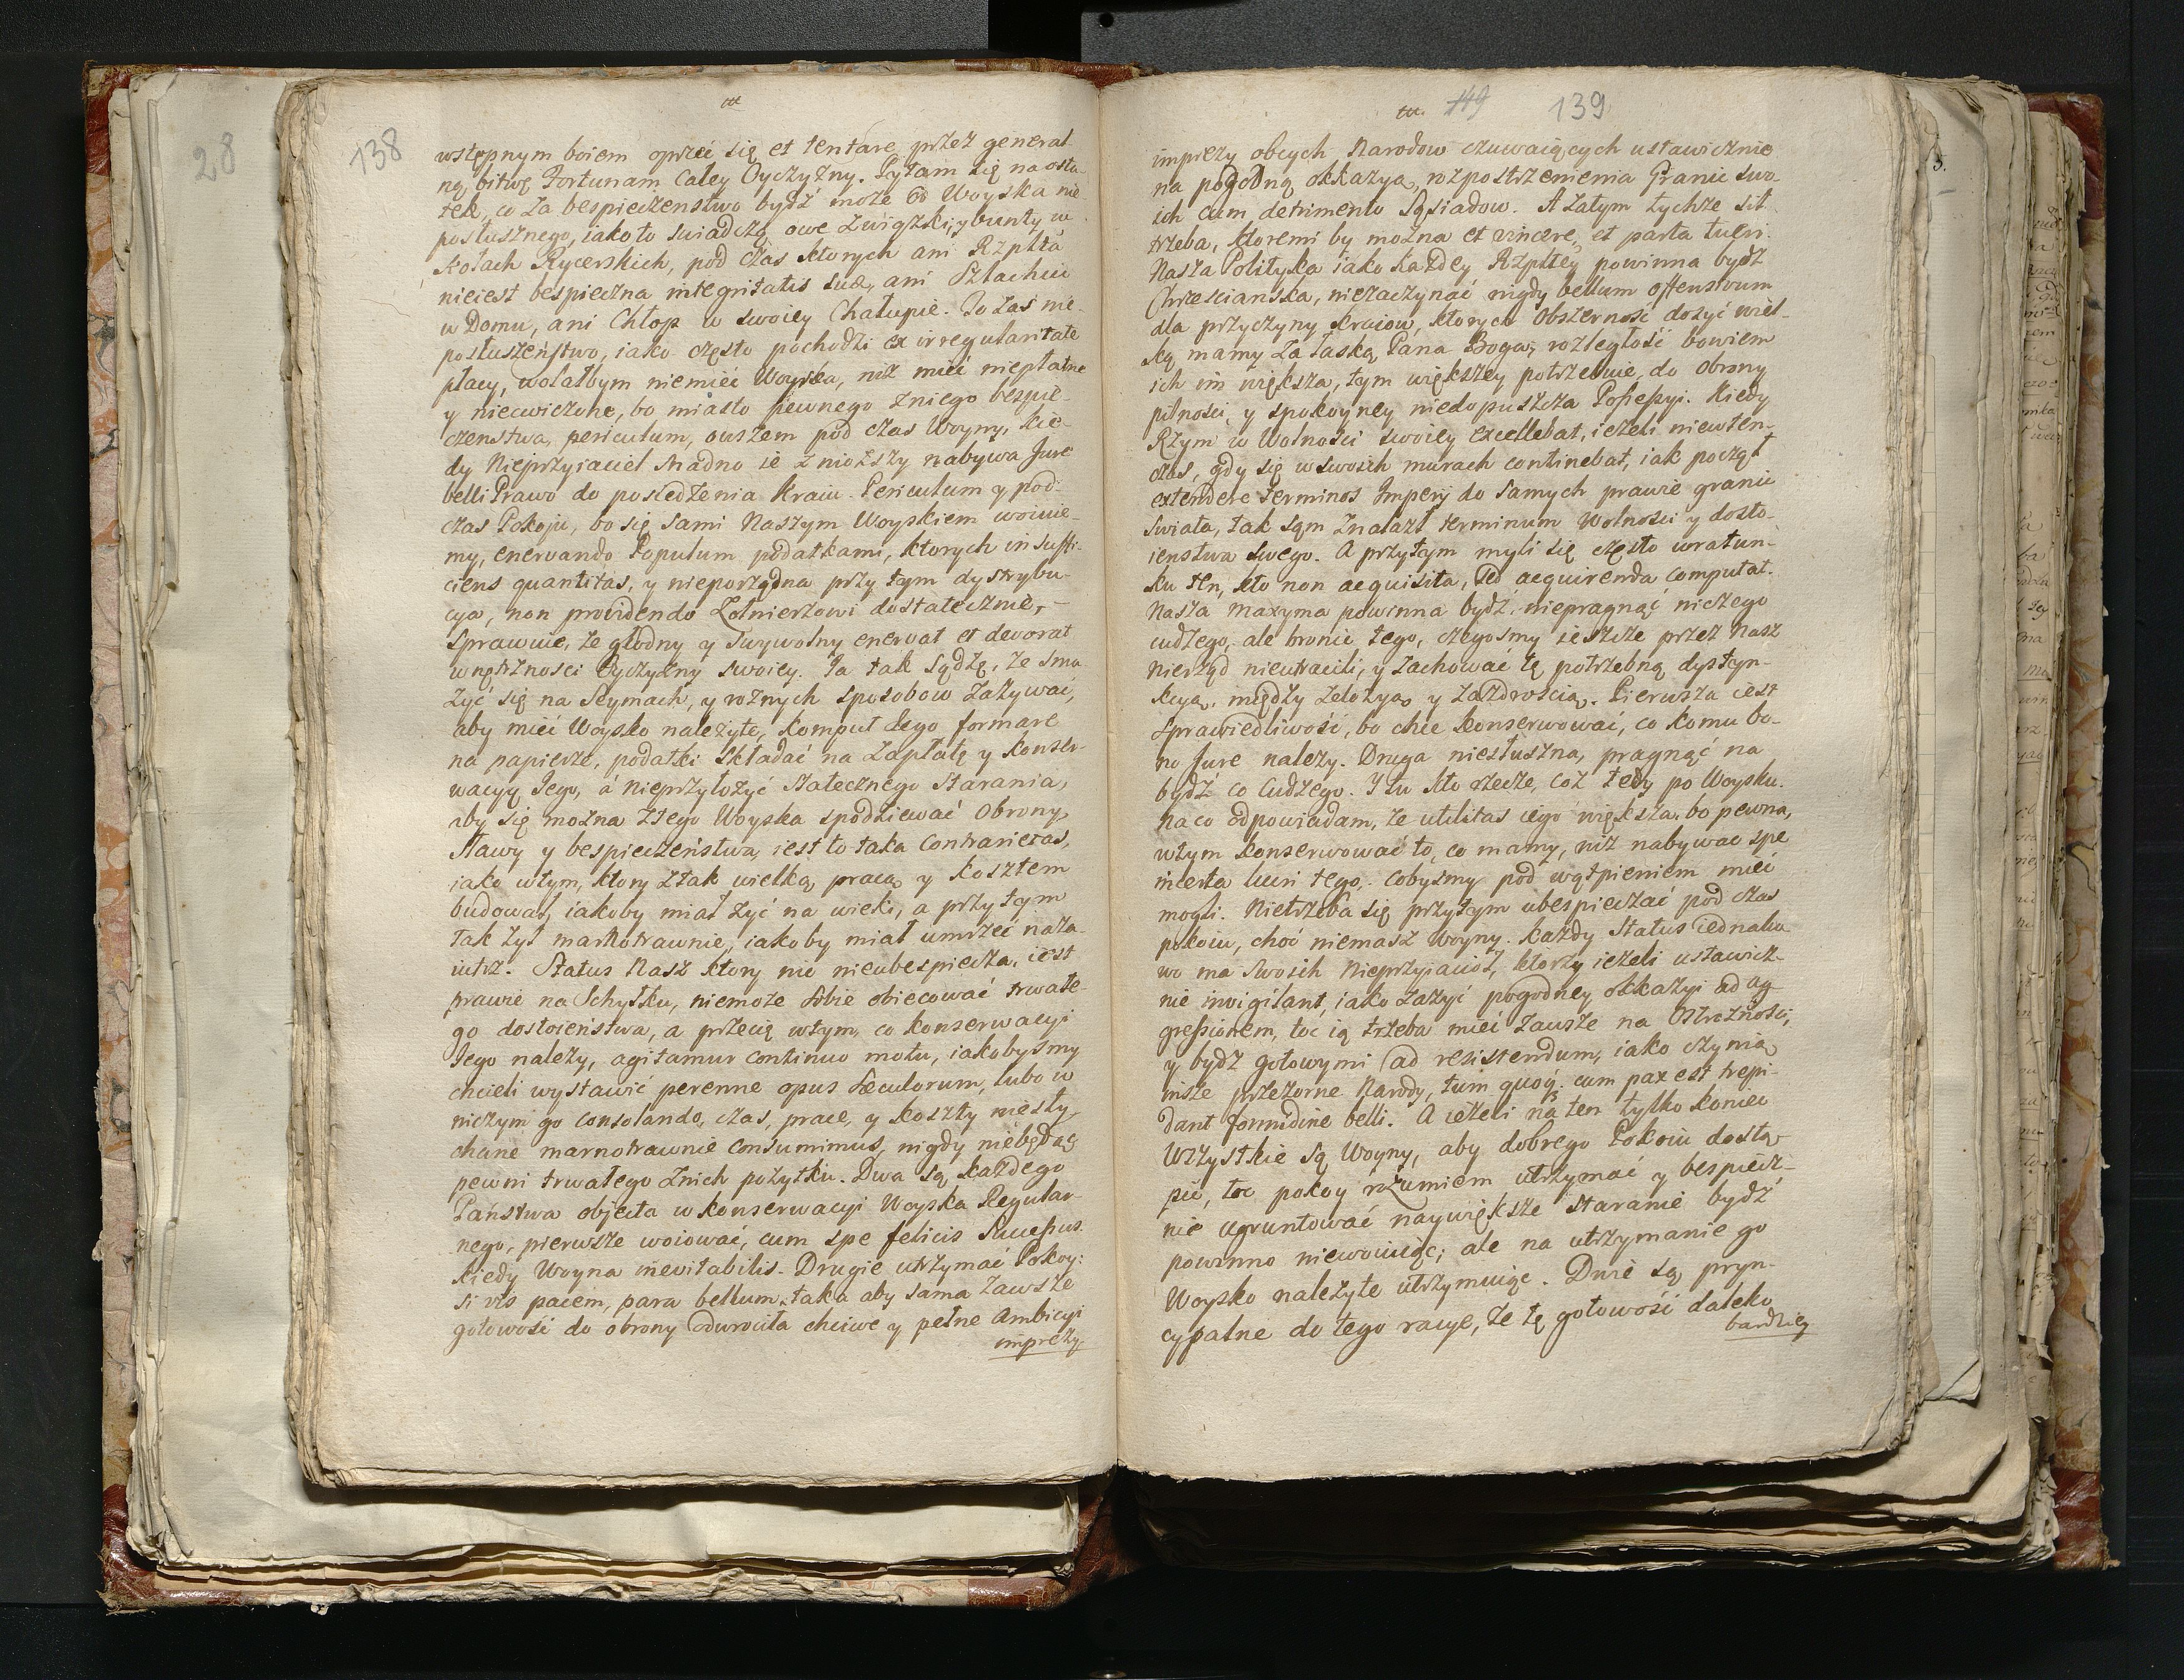 138
wstępnym boiem oprzeć się et tentare przez general-
ną bitwę Fortunam całey Oyczyzny. Pytam się na osta-
tek, co za bespieczenstwo bydź może od Woyska nie-
posłusznego, iako to swiadczą owe związki, y bunty w
Kołach Rycerskich, pod czas ktorych ani Rzpltá
nieiest bespieczna integritatis suæ, ani Szlachcic
w Domu, ani Chłop w swoiey Chałupie. To zaś nie-
posłuszeństwo, iako często pochodzi ex irregularitate
płacy, wolałbym niemieć Woyska, niż mieć niepłatne
y niecwiczone, bo miasto pewnego z niego bespie-
czenstwa, periculum, owszem pod czas Woyny, kie-
dy Nieprzyiaciel snadno ie zniozszy nabywa Jure
belli Prawo do posiedzenia Kraiu. Periculum y pod-
czas Pokoju, bo się sami Naszym Woyskiem woiuie-
my, enervando Populum podatkami, ktorych insuffi-
ciens quantitas, y nieporządna przy tym dystrybu-
cya, non providendo Zołnierzowi dostatecznie, –
sprawuie, że głodny y swywolny enervat et devorat
wnętrznosci Oyczyzny swoiey. Ja tak sądzę, że sma-
żyć się na Seymach, y rożnych sposobow zażywać,
aby mieć Woysko należyte, Komput Jego formare
na papierze, podatki składać na zapłatę y Konser-
wacyą Jego, á nieprzyłożyć statecznego starania,
aby się można z tego Woyska spodziewać Obrony,
sławy y bespieczeństwa, iest to taka Contrarietas,
iako w tym, ktory z tak wielką pracą y kosztem
budował, iakoby miał żyć na wieki, a przy tym
tak żył marnotrawnie, iakoby miał umrzeć naza-
iutrz. Status Nasz ktory nic nieubespiecza, iest
prawie na Schyłku, niemoże sobie obiecować trwałe-
go dostoieństwa, a przecię w tym, co konserwacyi
Jego należy, agitamur continuo motu, iakobysmy
chcieli wystawić perenne opus Seculorum, lubo w
niczym go consolando, czas, prace, y koszty niesły-
chane marnotrawnie consumimus, nigdy niebędąc
pewni trwałego z nich pożytku. Dwa są każdego
Państwa objecta w konserwacyi Woyska Regular-
nego, pierwsze woiować, cum spe felicis Successus.
kiedy Woyna inevitabilis. Drugie utrzymać Pokoy:
si vis pacem, para bellum, taka aby sama zawsze
gotowość do obrony odwrociła chciwe y pełne Ambicyi
imprezy
139
imprezy obcych Narodow czuwaiących ustawicznie
na pogodną okkazyą, rozpostrzenienia Granic swo-
ich cum detrimento Sąsiadow. A zatym tychże sił
trzeba, ktoremi by można et vincere, et parta tueri.
Nasza Polityka iako każdey Rzpltey powinna bydź
Chrzescianska, niezaczynać nigdy bellum offensivum
dla przyczyny Kraiow, ktorych Obszerność dosyć wiel-
ką mamy za łaską Pana Boga, rozległość bowiem
ich im większa, tym większey potrzebuie, do Obrony
pilności, y spokoyney niedopuszcza Possessyi. Kiedy
Rzym w Wolności swoiey excellebat, ieżeli niewten-
czas, gdy się w swoich murach continebat, iak począł
extendere terminos Imperij do samych prawie granic
swiata, tak sąm znalazł terminum Wolności y dosto-
ienstwa swego. A przytym myli się często w ratun-
ku ten, kto non acquisita, sed acquirenda computat.
Nasza Maxyma powinna bydź, niepragnąć niczego
cudzego, ale bronić tego, czegosmy ieszcze przez Nasz
nierząd nieutracili, y zachować tę potrzebną dystyn-
kcyą, między zelozyą y zazdroscią. Pierwsza iest
sprawiedliwość, bo chce konserwować, co komu bo-
no Jure należy. Druga niesłuszna, pragnąć na-
bydź co Cudzego. I tu kto rzecze, coż tedy po Woysku.
na co odpowiadam, że utilitas iego większa, bo pewna,
w tym konserwować to, co mamy, niż nabywać spe
incerta lucri tego, cobysmy pod wątpieniem mieć
mogli. Nietrzeba się przytym ubespieczać pod czas
pokoiu, choć niemasz Woyny. Każdy Status iednako-
wo ma swoich Nieprzyiacioł, ktorzy ieżeli ustawicz-
nie invigilant, iako zażyć pogodney okkazyi ad ag-
gressionem, toć ią trzeba mieć zawsze na Ostrożności,
y bydź gotowymi ad resistendum, iako czynią
insze przezorne Narody, tum quoq; cum pax est trepi-
dant formidine belli. A ieżeli na ten tylko koniec
wszystkie są Woyny, aby dobrego Pokoiu dostą-
pić, toć pokoy rozumiem utrzymać y bespiecz-
nie ugruntować naywiększe staranie bydź
powinno niewoiuiąc; ale na utrzymanie go
Woysko należyte utrzymuiąc. Dwie są pryn-
cypalne do tego racye, że tę gotowość daleko
bardziey
28